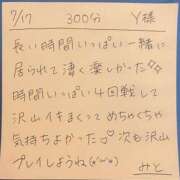 7/17 300分 Y様
長い時間いっぱい一緒に
居られて凄く楽しかった♡♡
時間いっぱい4回戦して
沢山イキまくってめちゃくちゃ
気持ちよかった♡次も沢山
プレイしようね(*'ω'*)
みと